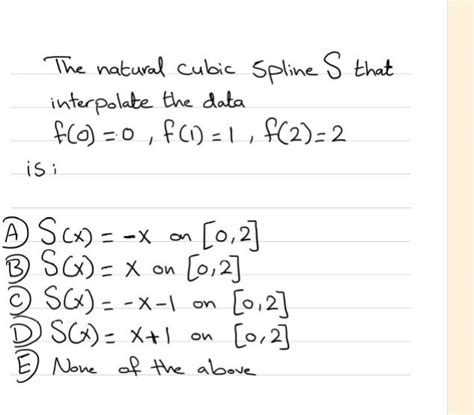 The natural cubic spline S that
interpolate the data
f(0) = 0 , f(1) = 1 , f(2) = 2
is:
A S(x) = -x on [0,2]
B S(x) = x on [0,2]
C S(x) = -x-1 on [0,2]
D S(x) = x+1 on [0,2]
E None of the above